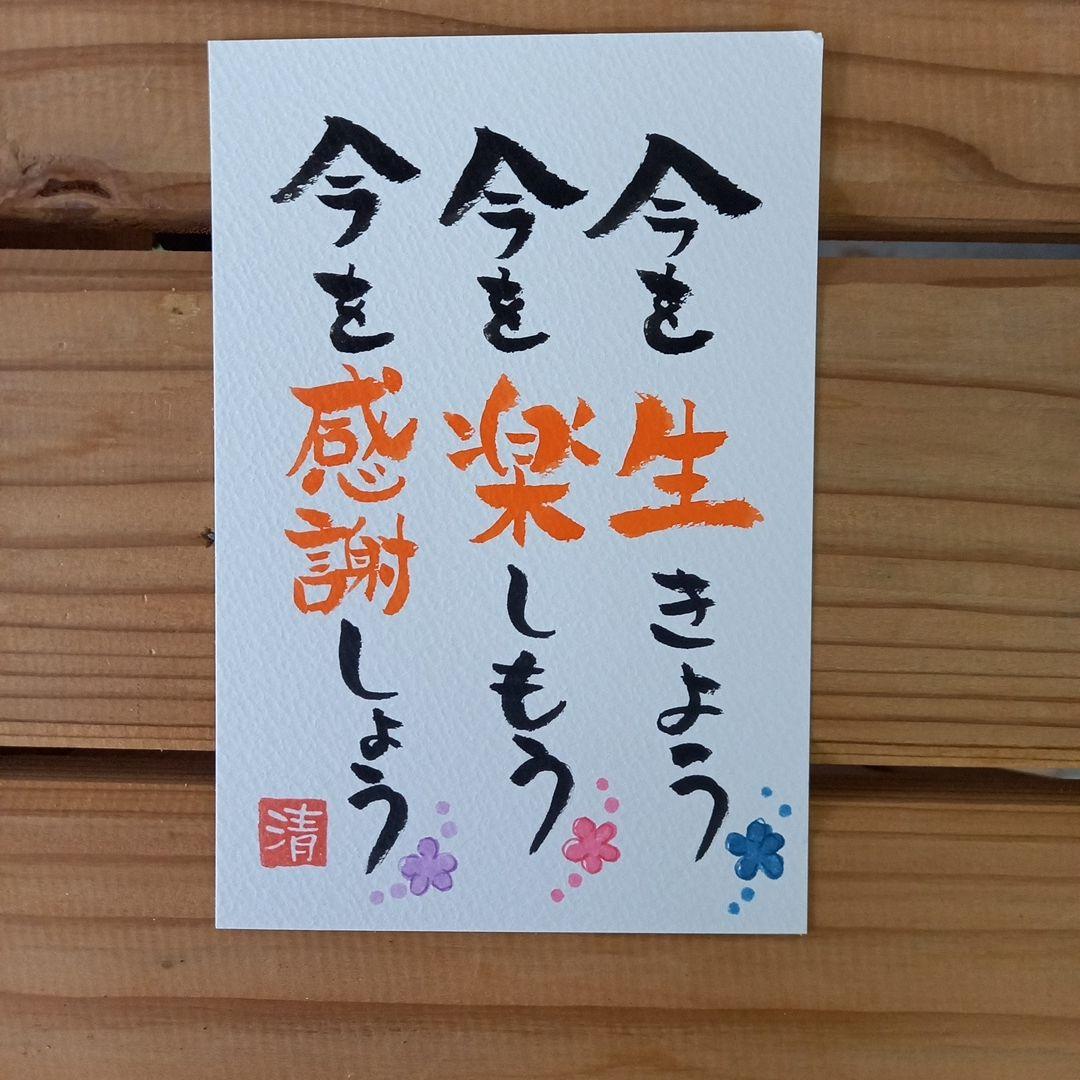 今を生きよう
今を楽しもう
今を感謝しょう
清